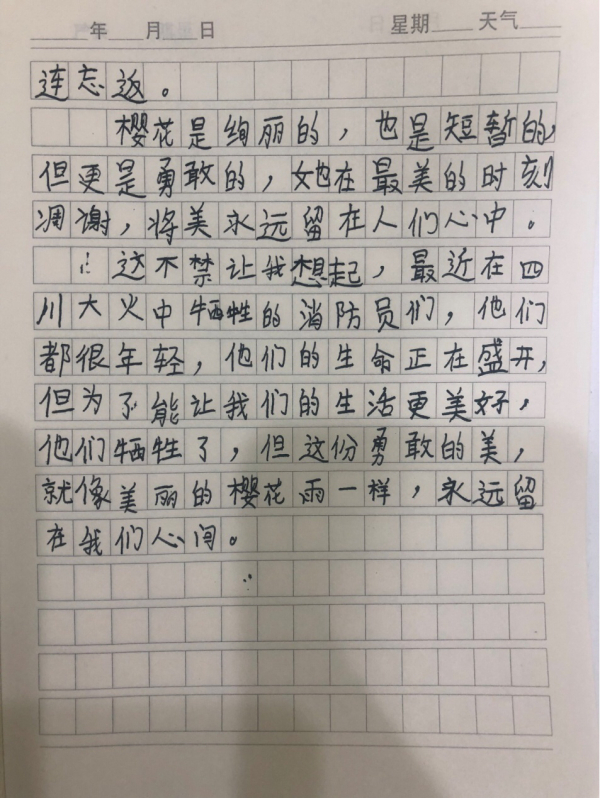 年 月 日 星期 天气
连忘返。
樱花是绚丽的，也是短暂的，
但更是勇敢的，她在最美的时刻
凋谢，将美永远留在人们心中。
这不禁让我想起，最近在四
川大火中牺牲的消防员们，他们
都很年轻，他们的生命正在盛开，
但为了能让我们的生活更美好，
他们牺牲了，但这份勇敢的美，
就像美丽的樱花雨一样，永远留
在我们心间。